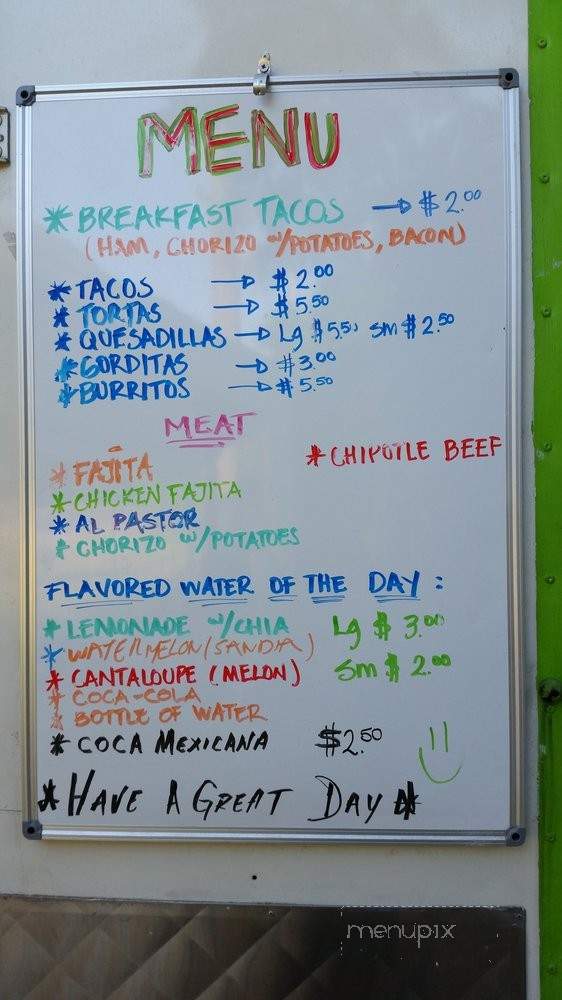 MENU
* BREAKFAST TACOS → $2.00
(HAM, CHORIZO w/POTATOES, BACON)
* TACOS → $2.00
* TORTAS → $5.50
* QUESADILLAS → Lg $5.50 sm $2.50
* GORDITAS → $3.00
* BURRITOS → $5.50
MEAT
* CHIPOTLE BEEF
* FAJITA
* CHICKEN FAJITA
* AL PASTOR
* CHORIZO w/POTATOES
FLAVORED WATER OF THE DAY :
* LEMONADE w/CHIA Lg $3.00
* WATERMELON (SANDIA)
* CANTALOUPE (MELON) Sm $2.00
* COCA-COLA
* BOTTLE OF WATER
* COCA MEXICANA $2.50
* HAVE A GREAT DAY *
menupix